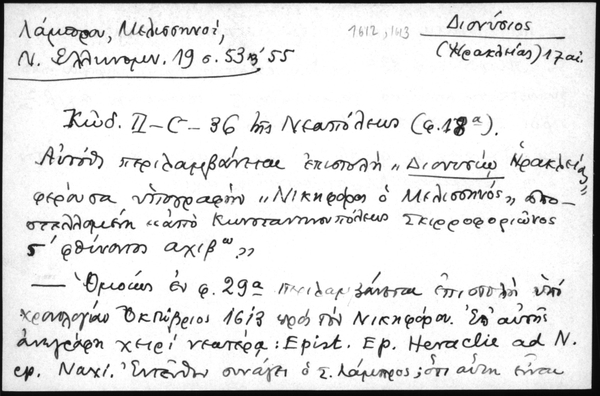 Λάμπρου, Μελισσηνοί, 1612, 1613 Διονύσιος
Ν. Ελληνομν. 19 σ. 53 55 (Ηρακλείας) 17 αι.
Κώδ. II-C-36 της Νεαπόλεως (φ. 18α).
Αυτόθι περιλαμβάνεται επιστολή "Διονυσίῳ Ηρακλείας
φέρουσα υπογραφήν "Νικηφόρος ὁ Μελισσηνός", απο-
στελλομένη "από Κωνσταντινουπόλεως Σκιρροφοριώνος
ς' φθίνοντος αχιβω"
— Ὁμοίως ἐν φ. 29α περιλαμβάνεται ἐπιστολή ὑπό
χρονολογίαν Ὀκτώβριος 1613 πρός τόν Νικηφόρον. Ἐπ' αὐτῆς
ἀνεγράφη χειρί νεωτέρᾳ: Epist. Ep. Heraclie ad N.
ep. Naxi. Ἐντεῦθεν συνάγει ὁ Σ. Λάμπρος, ὅτι αὕτη εἶναι